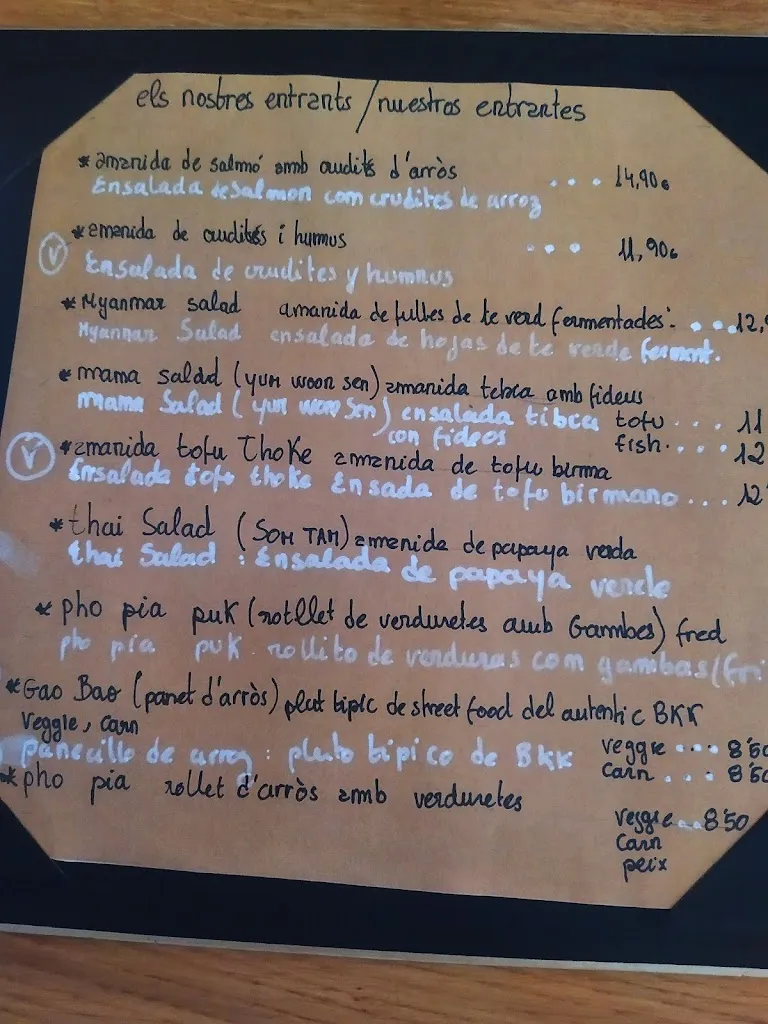 els nostres entrants / nuestros entrantes
* amanida de salmó amb crudités d'arròs ... 14,90€
Ensalada de salmon com crudites de arroz
* amanida de crudités i humus ... 11,90€
V Ensalada de crudites y hummus
* Myanmar salad amanida de fulles de te verd fermentades: ... 12,9
Myanmar Salad ensalada de hojas de te verde ferment.
* mama salad (yun woon sen) amanida tebea amb fideus
mama Salad (yun won Sen) ensalada tibea tofu ... 11
con fideos fish ... 12
V * amanida tofu Thoke amanida de tofu birma
Ensalada tofu thoke Ensada de tofu birmano ... 12'
* thai Salad (SOM TAM) amanida de papaya verda
thai Salad : Ensalada de papaya verde
* pho pia puk (rotllet de verduretes amb Gambes) fred
pho pia puk rollito de verduras com gambas (fri
* Gao Bao (panet d'arròs) plat tipic de street food del autentic BKK
Veggie, carn
panecillo de arroz : pluto tipico de BKK veggie ... 8'50
Carn ... 8'50
* pho pia rollet d'arròs amb verduretes
veggie ... 8'50
Carn
peix